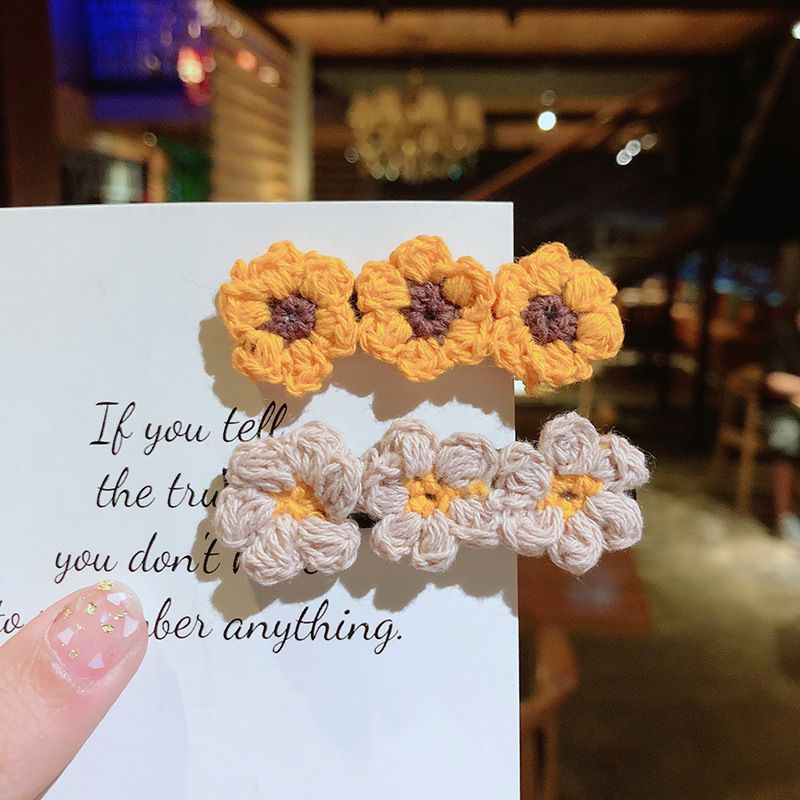 If you tell
the tru
you don't
to ber anything.